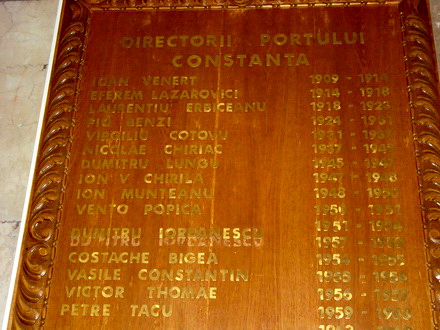 DIRECTORII PORTULUI
CONSTANTA
IOAN VENERT 1909 - 1914
EFREM LAZAROVICI 1914 - 1918
LAURENTIU ERBICEANU 1918 - 1923
PIU BENZI 1924 - 1931
VIRGILIU COTOVU 1931 - 1937
NICOLAE CHIRIAC 1937 - 1945
DUMITRU LUNGU 1945 - 1947
ION V CHIRILA 1947 - 1948
ION MUNTEANU 1948 - 1950
VENTO POPICA 1950 - 1951
1951 - 1954
DUMITRU IORDANESCU 1957 -
COSTACHE BIGEA 1954 - 1955
VASILE CONSTANTIN 1955 - 1956
VICTOR THOMAE 1956 - 1957
PETRE TACU 1959 -